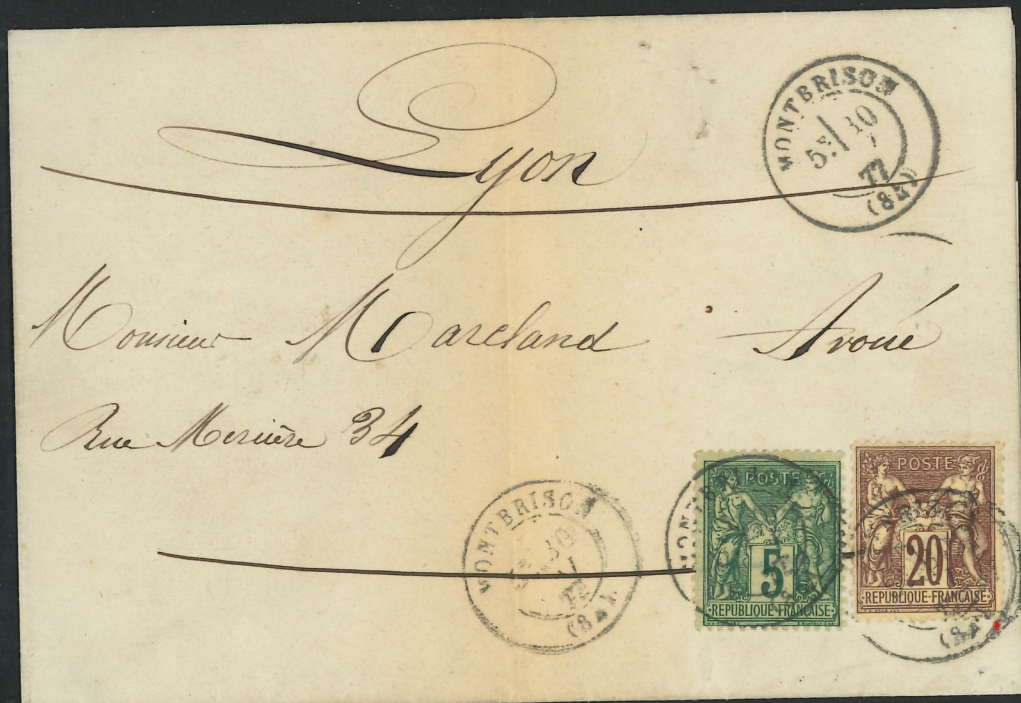 Lyon
MONTBRISON
5E 30
77
(84)
Monsieur Marcland Avoué
Rue Mercière 34
MONTBRISON
30
77
(84)
POSTE
5
REPUBLIQUE FRANÇAISE
POSTE
20
REPUBLIQUE FRANÇAISE